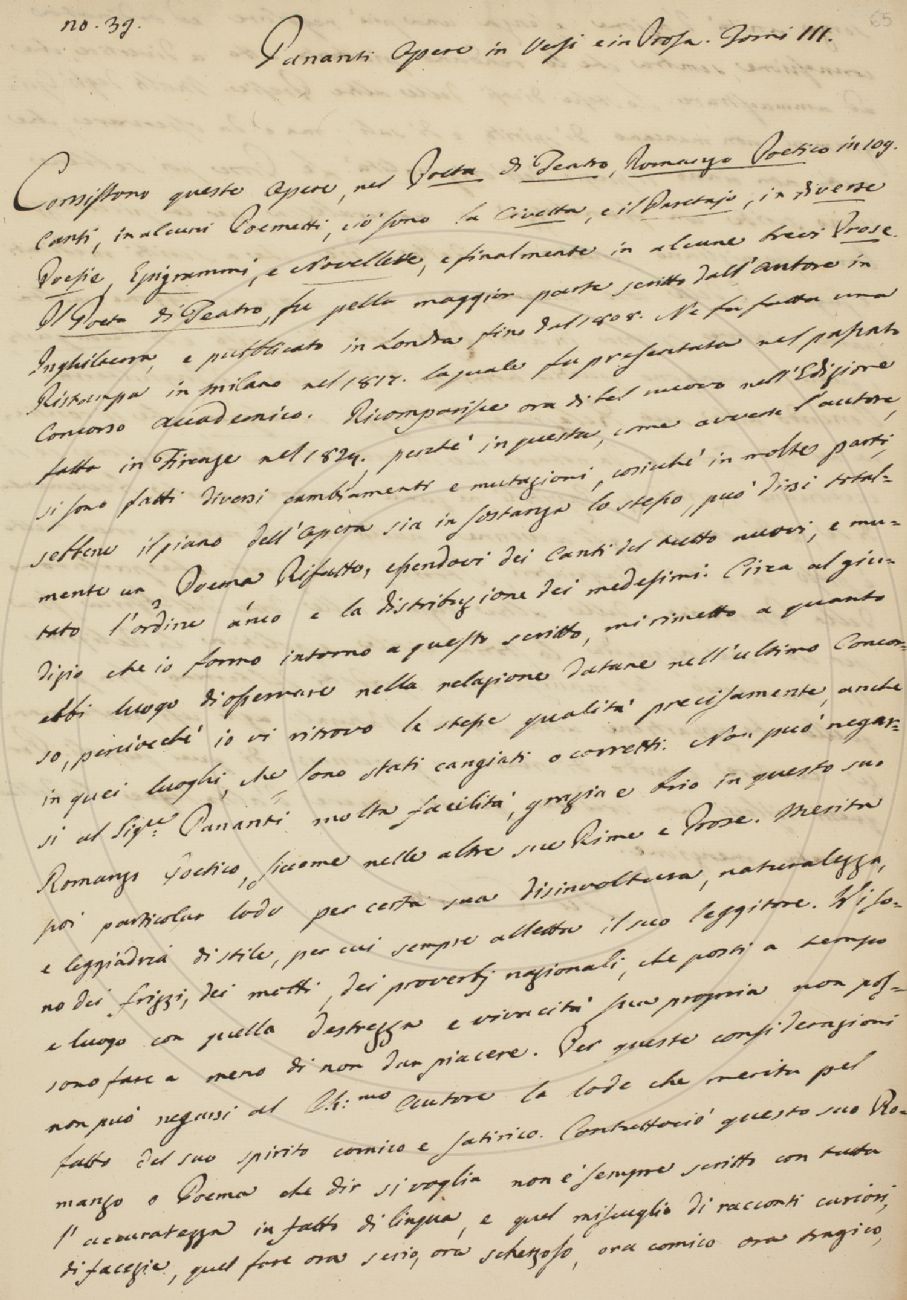 no. 39.
65
Pananti Opere in Versi e in Prosa. Tomi III.
Consistono queste Opere, nel Poeta di Teatro, Romanzo Poetico in 109.
Canti, in alcuni Poemetti, ciò sono la Civetta, e il Paretajo, in diverse
Poesie, Epigrammi, e Novellette, e finalmente in alcune brevi Prose.
Il Poeta di Teatro, fu pella maggior parte scritto dall'Autore in
Inghilterra, e pubblicato in Londra fin dal 1808. Ne fu fatta una
Ristampa in Milano nel 1817. la quale fu presentata nel passato
Concorso Accademico. Ricomparisce ora di bel nuovo nell'Edizione
fatta in Firenze nel 1824., perchè in questa, come avverte l'autore,
si sono fatti diversi cambiamenti e mutazioni, cosicchè in molte parti,
sebbene il piano dell'Opera sia in sostanza lo stesso, può dirsi total-
mente un Poema Rifatto, essendovi dei Canti del tutto nuovi, e mu-
tato l'ordine anco e la distribuzione dei medesimi. Circa al giu-
dizio che io formo intorno a questo scritto, mi rimetto a quanto
ebbi luogo di osservare nella relazione datane nell'ultimo Concor-
so, perciocchè io vi ritrovo le stesse qualità precisamente, anche
in quei luoghi, che sono stati cangiati o corretti. Non può negar-
si al Sigre. Pananti molta facilità, grazia e brio in questo suo
Romanzo Poetico, siccome nelle altre sue Rime e Prose. Merita
poi particolar lode per certa sua disinvoltura, naturalezza,
e leggiadria di stile, per cui sempre alletta il suo leggitore. Vi so-
no dei frizzi, dei motti, dei proverbj nazionali, che posti a tempo
e luogo con quella destrezza e vivacità sua propria non pos-
sono fare a meno di non dar piacere. Per queste considerazioni
non può negarsi al Ch:mo Autore la lode che merita pel
fatto del suo spirito comico e satirico. Contuttociò questo suo Ro-
manzo o Poema che dir si voglia non è sempre scritto con tutta
l'accuratezza in fatto di lingua, e quel miscuglio di racconti curiosi,
di facezie, quel fare ora serio, ora scherzoso, ora comico ora tragico,